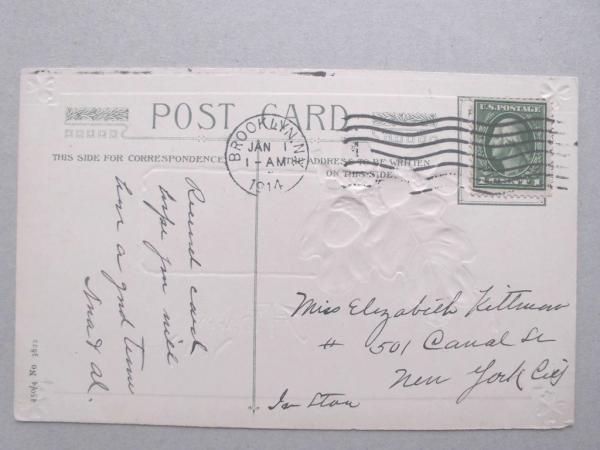 POST CARD
THIS SIDE FOR CORRESPONDENCE
THE ADDRESS TO BE WRITTEN
ON THIS SIDE
BROOKLYN, N.Y.
JAN 1
1-AM
1914
U.S. POSTAGE
1 CENT 1
Received card
hope you will
have a good time
and al.
Miss Elizabeth
# 501 Canal St
New York City
In Store
No 3822